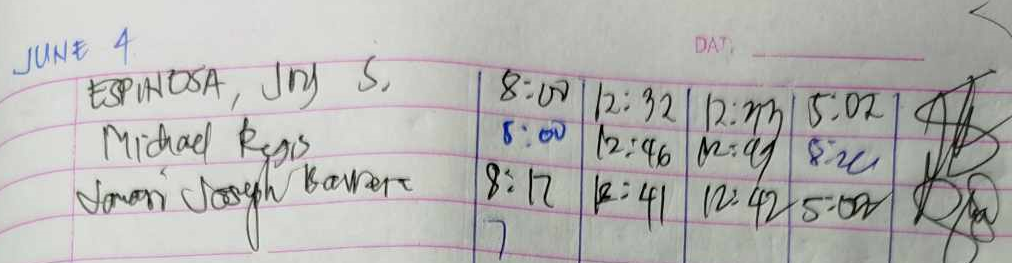 JUNE 4
DATE
ESPINOSA, Joy S. 8:00 12:32 12:33 5:02
Michael Regis 8:00 12:46 12:49
Joseph 8:17 12:41 12:42 5:02